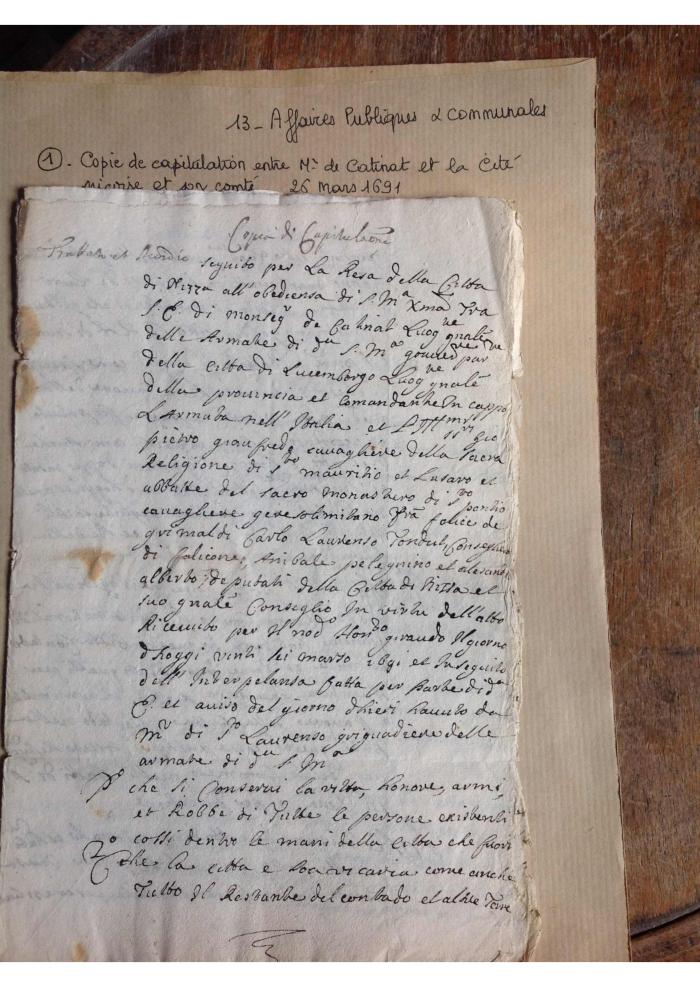 13_ Affaires Publiques & communales
① - Copie de capitulation entre Mr de Catinat et la Cité
niçoise et son comté 26 mars 1691
Copia di Capitulaone
Trattati et Acordio seguito per La Resa della Citta
di Nizza all'obediensa di S. Ma Xma Tra
S. E. di monsegr de Catinat Luogve gnale
delle Armate di da S. Ma gouverve par
della citta di Lucemborgo Luogve gnale
della provincia et Comandante In cappo
L'Armata nell'Italia et
pietro giaufredo cavagliere della sacra
Religione di Sto mauritio et Lasaro et
abbatte del sacro monastero di Sto pontio
cavagliere gerosolimitano fra felice de
grimaldi Carlo Laurenso Tondut, Consegniore
di falicone, Anibale pelegrino et
alberto, deputati della Citta di Nizza et
suo gnale Conseglio In virtu dell'atto
Riceuuto per Il nodo Honto giraudo Il giorno
d'hoggi vinti sei marzo 1691 et In seguito
dell'Interpelansa fatta per parte di da
E. et aviso del giorno d'hieri hauuto da
Mr di So Laurenso griguadiere delle
armate di da S. Ma
Po che si Conservi la vitta, honore, armi,
et Robbe di Tutte le persone existenti
cossi dentro le mani della citta che fuori
2o che la citta e soa vicaria come anche
Tutto Il Restante del contado et altre Terre